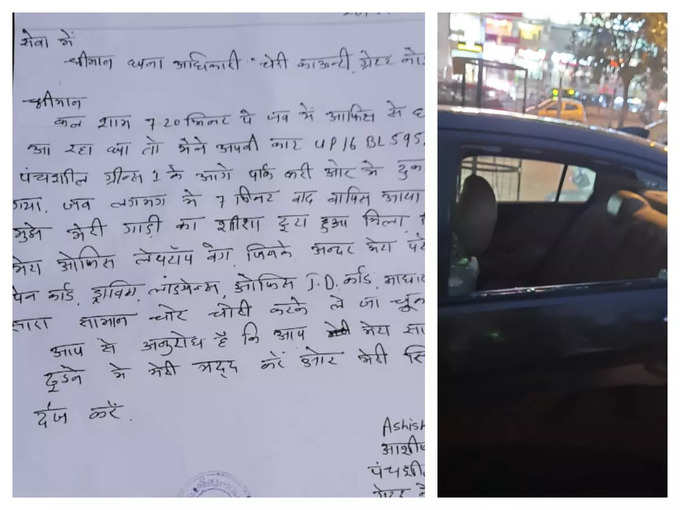 सेवा में
श्रीमान थाना अधिकारी चेरी काऊन्टी, ग्रेटर
श्रीमान
कल शाम 7 20 मिनट पे जब में आफिस से
आ रहा था तो मैने अपनी कार UP16 BL 595
पंचशील ग्रीन्स 1 के आगे पार्क करी ओर मे
गया. जब लगभग मे 7 मिनट बाद वापिस आया
मुझे मेरी गाड़ी का शीशा टूटा हुआ मिला
मेरा ओफिस लेपटॉप बेग जिसके अन्दर मेरा
पेन कार्ड, ड्राविंग लाइसेन्स, ओफिस I.D. कार्ड,
सारा सामान चोर चोरी करके ले जा
आप से अनुरोध है कि आप मेरा
ढूडने मे मेरी मदद करें ओर मेरी
दर्ज करें.
Ashish
पंचशील